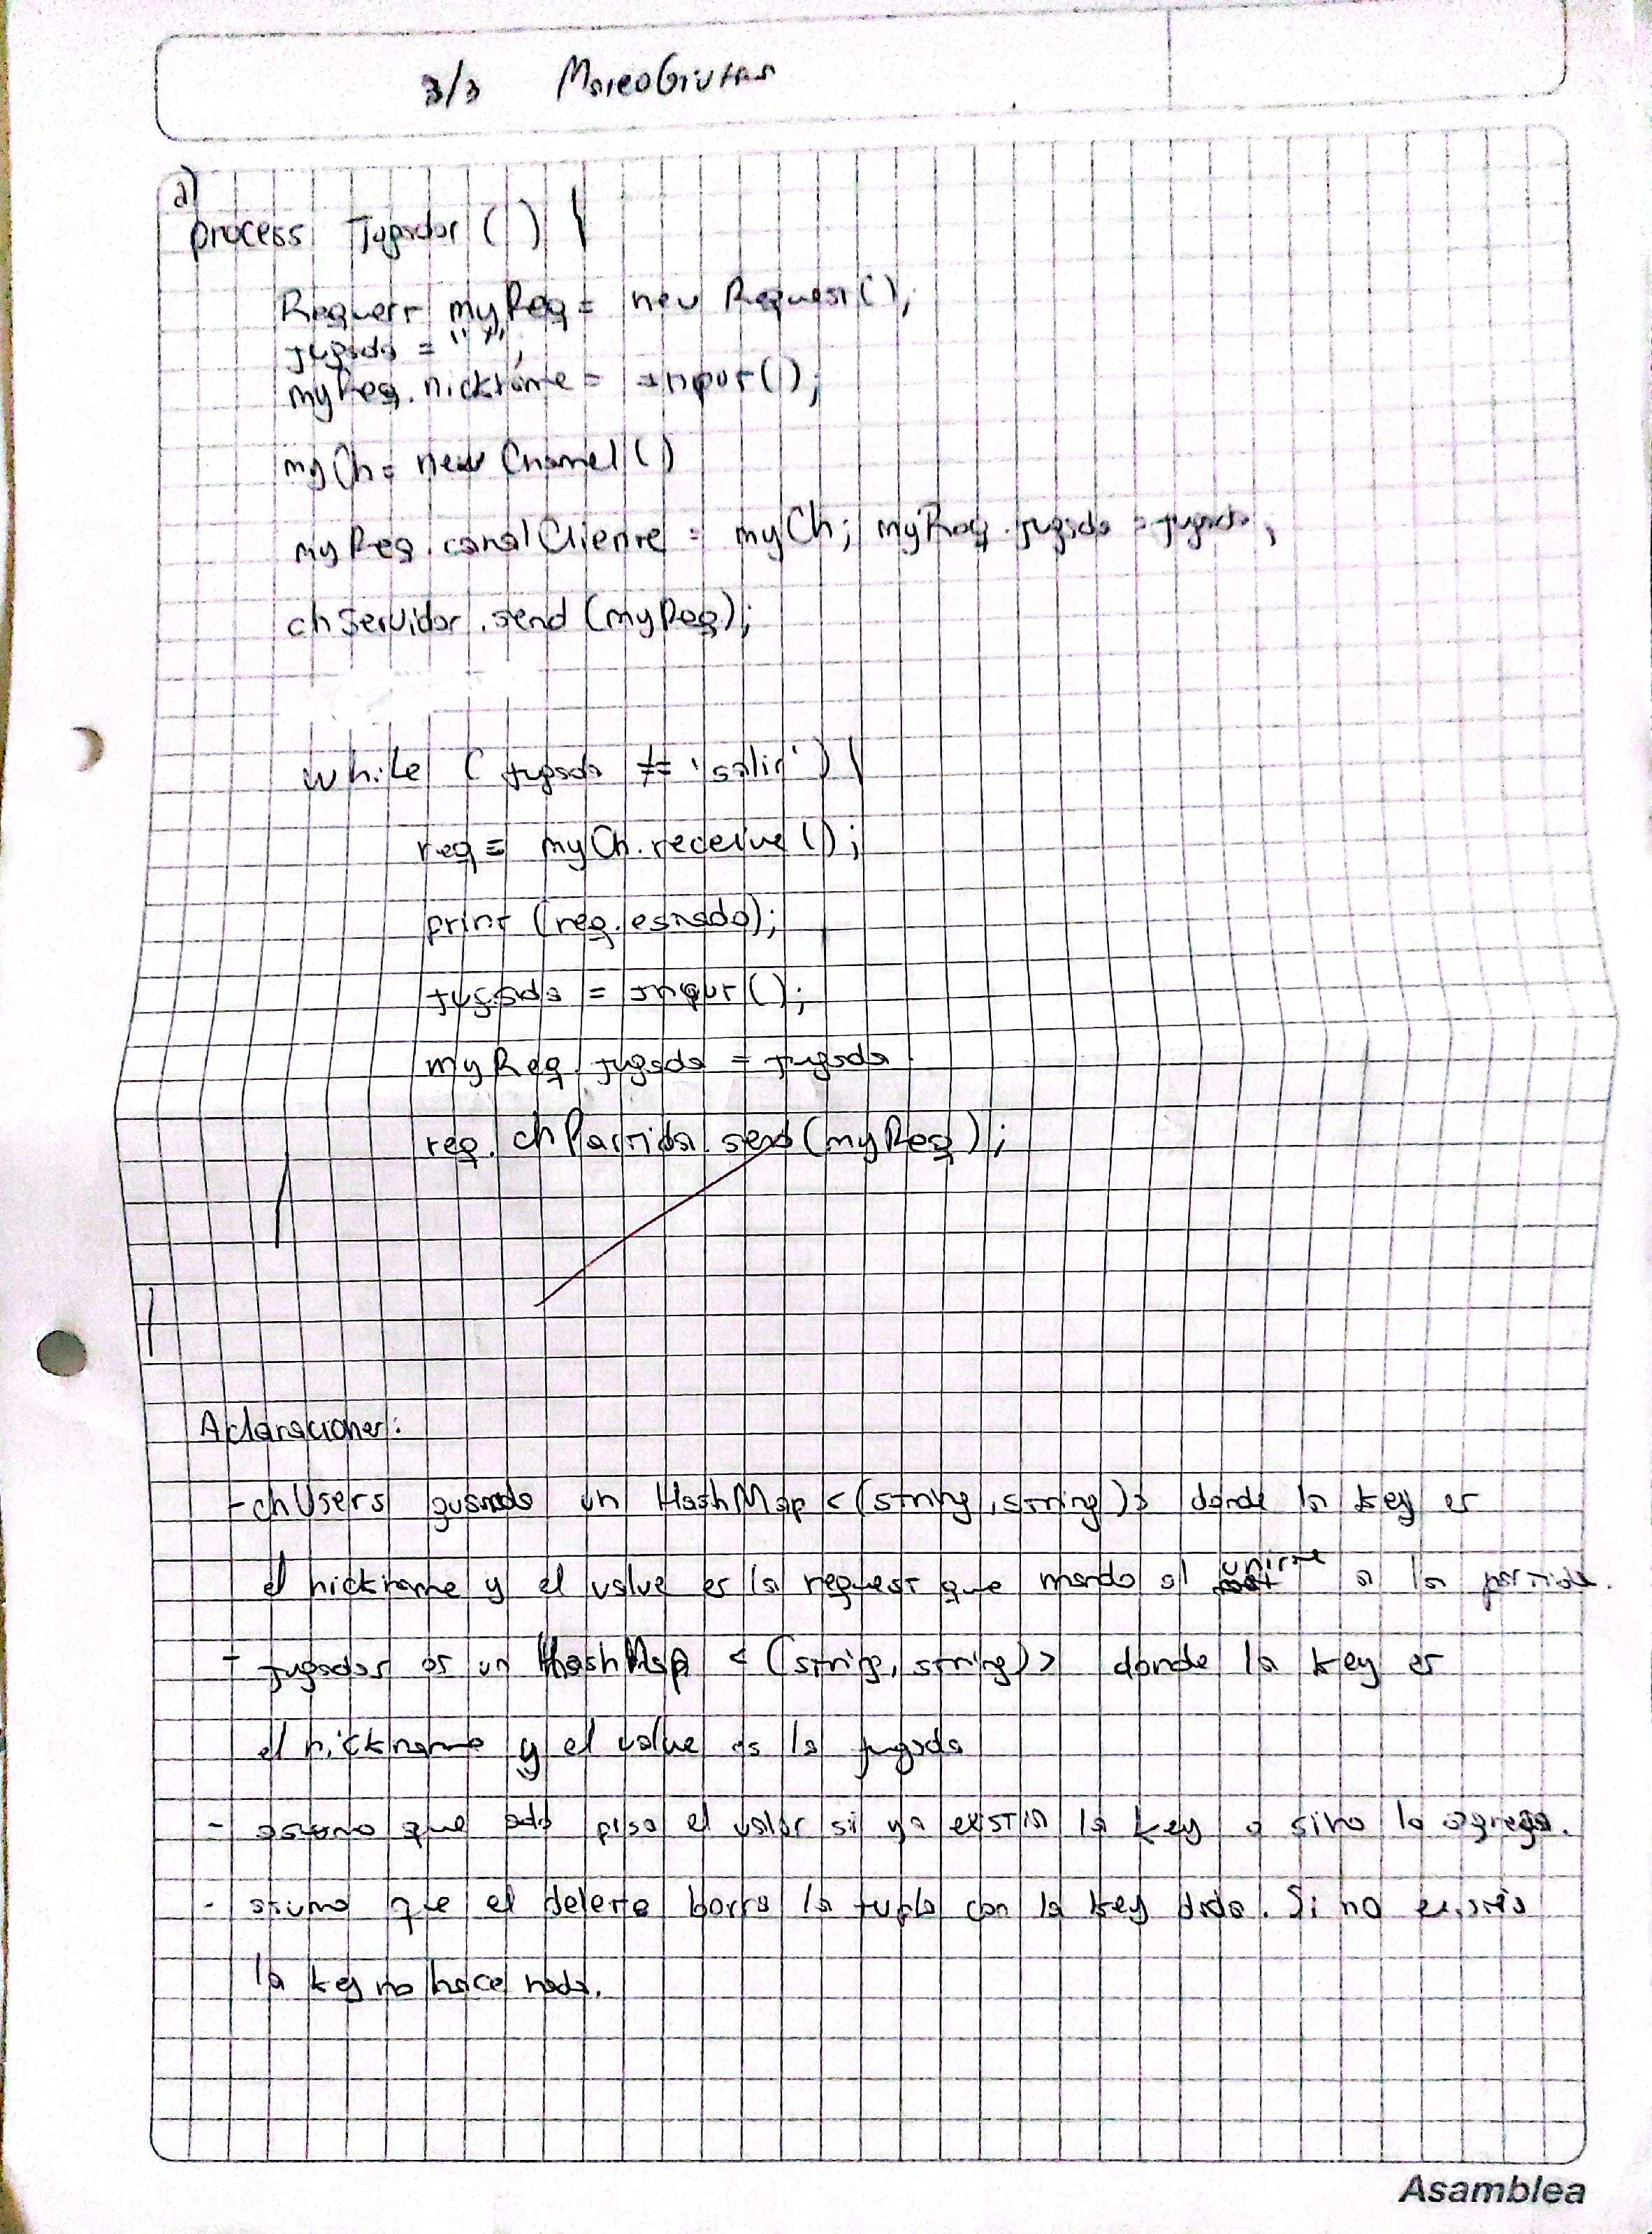 3/3
a)
process Jugador ( ) {
Request myReq = new Request();
jugada = "";
myReq.nickname = input();
myCh = new Channel()
myReq.canalCliente = myCh; myReq.jugada = jugada;
chServidor.send(myReq);
while ( jugada != 'salir' ) {
req = myCh.receive();
print (req.estado);
jugada = input();
myReq.jugada = jugada
req.chPartida.send(myReq);
}
}
Aclaraciones:
- chUsers guarda un HashMap <(string, string)> donde la key es
el nickname y el value es la request que mando al unirse a la partida.
- jugador es un HashMap <(string, string)> donde la key es
el nickname y el value es la jugada
- asumo que add pisa el valor si ya existia la key o sino lo agrega.
- asumo que el delete borra la tupla con la key dada. Si no existia
la key no hace nada.
Asamblea